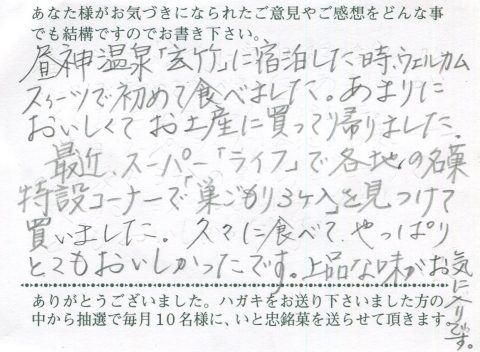 あなた様がお気づきになられたご意見やご感想をどんな事
でも結構ですのでお書き下さい。
昼神温泉「玄竹」に宿泊した時、ウェルカム
スィーツで初めて食べました。あまりに
おいしくてお土産に買って帰りました。
最近、スーパー「ライフ」で各地の名菓
特設コーナーで「巣ごもり3ヶ入」を見つけて
買いました。久々に食べて、やっぱり
とてもおいしかったです。上品な味がお気に入りです。
ありがとうございました。ハガキをお送り下さいました方の
中から抽選で毎月10名様に、いと忠銘菓を送らせて頂きます。